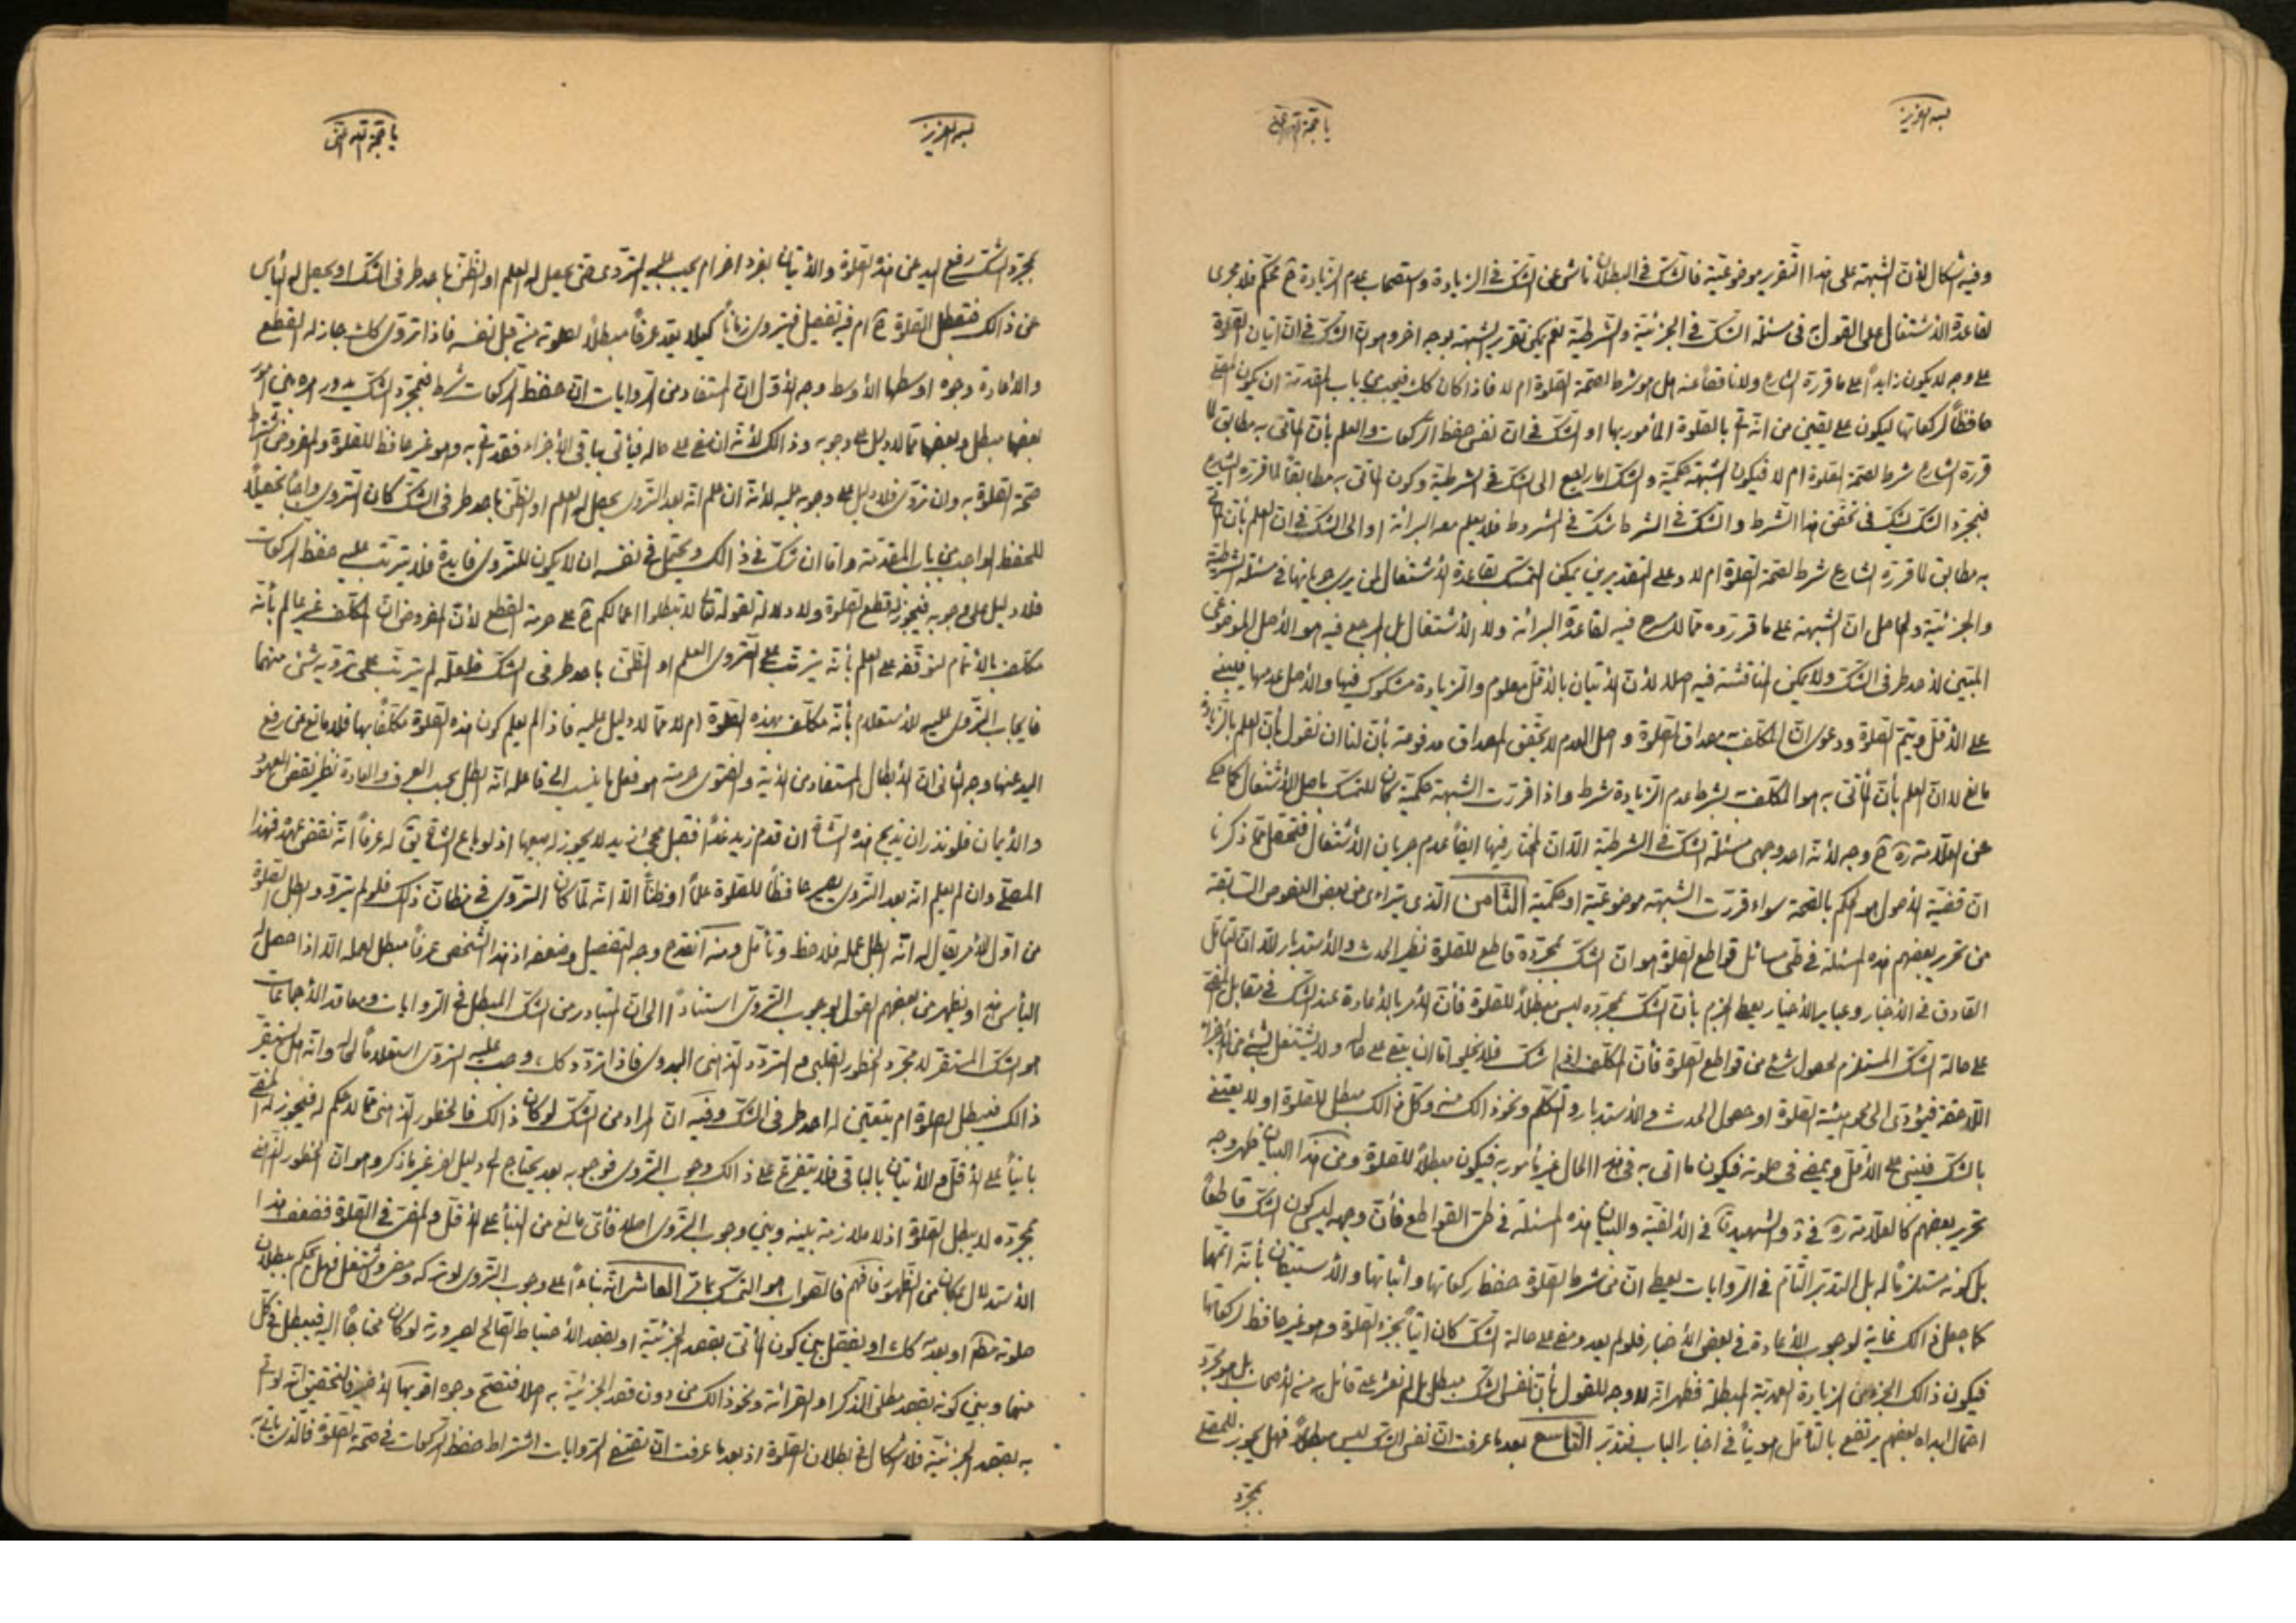 بسمه العزيز
يا حجة الله
وفيه اشكال لأن الشبهة على هذا التقرير موضوعية فالشك في البطلان ناش عن الشك في الزيادة واستصحاب عدم الزيادة ح محكم فلا مجرى
لقاعدة الاشتغال على القول به في مسئلة الشك في الجزئية والشرطية نعم يمكن تقرير الشبهة بوجه اخر وهو ان الشك في ان اتيان الصلوة
على وجه لا يكون زايداً على ما قرره الشارع ولا ناقصاً عنه هل هو شرط لصحة الصلوة ام لا فاذا كان كك فيجب من باب المقدمة ان يكون المصلي
حافظاً لركعاتها ليكون على يقين من انه اتى بالصلوة المأمور بها او الشك في ان نفس حفظ الركعات والعلم بأن المأتي به مطابق لما
قرره الشارع شرط لصحة الصلوة ام لا فيكون الشبهة حكمية والشك اما راجع الى الشك في الشرطية وكون المأتي به مطابقاً لما قرره الشارع
فبمجرد الشك يشك في تحقق هذا الشرط والشك في الشرط شك في المشروط فلا يعلم معه البرائة او الى الشك في ان العلم بأن المأتي
به مطابق لما قرره الشارع شرط لصحة الصلوة ام لا وعلى التقديرين يمكن التمسك بقاعدة الاشتغال لمن يرى جريانها في مسئلة الشرطية
والجزئية والحاصل ان الشبهة على ما قرروه مما لا مسرح فيه لقاعدة البرائة ولا الأشتغال بل المرجع فيه هو الأصل الموضوعي
المتيقن لاحد طرفي الشك ولا يمكن المناقشة فيه اصلا لأن الأتيان بالأقل معلوم والزيادة مشكوك فيها والأصل عدمها فيبنى
على الأقل ويتم الصلوة ودعوى ان المكلف به مصداق الصلوة واصل العدم لا يحقق المصداق مدفوعة بأن لنا ان نقول بأن العلم بالزيادة
مانع لا ان العلم بأن المأتي به هو المكلف به بشرط عدم الزيادة شرط واذا قررت الشبهة حكمية كان للتمسك بأصل الأشتغال كما حكي
عن العلامة ره ح وجه لأنه احد وجهي مسئلة الشك في الشرطية الا ان المختار فيها ايضاً عدم جريان الأشتغال فتحصل مما ذكرنا
ان قضية الأصول هو الحكم بالصحة سواء قررت الشبهة موضوعية او حكمية الثامن الذي يتراءى من بعض النصوص السابقة
من تحرير بعضهم هذه المسئلة في طي مسائل قواطع الصلوة هو ان الشك بمجرده قاطع للصلوة نظير الحدث والأستدبار الا ان التأمل
الصادق في الأخبار وعباير الأخيار يعطي الجزم بأن الشك بمجرده ليس مبطلاً للصلوة فأن الأمر بالأعادة عند الشك في مقابل المضي
على حالة الشك المستلزم لحصول شئ من قواطع الصلوة فأن المكلف اذا شك فلا يخلو اما ان يبقى على حاله ولا يشتغل بشئ من الأجزاء
اللاحقة فيؤدي الى محو هيئة الصلوة او حصول الحدث والأستدبار والتكلم ونحو ذالك منه وكل ذالك مبطل للصلوة او لا يعتني
بالشك فيبني على الأقل ويمضي في صلوته فيكون ما اتى به في هذا الحال غير مأمور به فيكون مبطلاً للصلوة ومن هذا البيان ظهر وجه
تحرير بعضهم كالعلامة ره في والشهيد في الألفية والبيان هذه المسئلة في طي القواطع فأن وجهه ليس كون الشك قاطعاً
بل كونه مستلزماً له بل التدبر التام في الروايات يعطي ان من شرط الصلوة حفظ ركعاتها واثباتها والأستيقان بأنه اتمها
كما جعل ذالك غاية لوجوب الأعادة في بعض الأخبار فلو لم يعد ومضى على حالة الشك كان اتياً بجزء الصلوة وهو غير حافظ لركعاتها
فيكون ذالك الجزء من الزيادة العمدية المبطلة فظهر انه لا وجه للقول بأن نفس الشك مبطل بل لم نعثر على قائل به من الأصحاب بل هو مجرد
احتمال ابداه بعضهم يرتفع بالتأمل هويناً في اخبار الباب فتدبر التاسع بعد ما عرفت ان نفس الشك ليس مبطلاً فهل يجوز للمصلي
بمجرد
بسمه العزيز
يا حجة الله
بمجرد الشك رفع اليد عن هذه الصلوة والأتيان بفرد اخر ام يجب عليه التروي حتى يحصل له العلم او الظن باحد طرفي الشك او يحصل له اليأس
عن ذالك فتبطل الصلوة ح ام فيه تفصيل فيتروى زماناً كيلا يعد عرفاً مبطلاً لصلوته من قبل نفسه فاذا تروى كك جاز له القطع
والأعادة وجوه اوسطها الأوسط وجه الأول ان المستفاد من الروايات ان حفظ الركعات شرط فبمجرد الشك يدور امره بين امور
بعضها مبطل وبعضها مما لا دليل على وجوبه وذالك لأنه ان بقي على حاله فيأتي بباقي الأجزاء فقد اتى به وهو غير حافظ للصلوة والمفروض اشتراط
صحة الصلوة به وان تروى فلا دليل على وجوبه عليه لأنه ان علم انه بعد التروي يحصل له العلم او الظن باحد طرفي الشك كان التروي واجباً تحصيلاً
للحفظ الواجب من باب المقدمة واما ان شك في ذالك ويحتمل في نفسه ان لا يكون للتروي فايدة فلا يترتب عليه حفظ الركعات
فلا دليل على وجوبه فيجوز له قطع الصلوة ولا دلالة لقوله تعالى لا تبطلوا اعمالكم ح على حرمة القطع لأن المفروض ان المكلف غير عالم بأنه
مكلف بالأتمام لتوقفه على العلم بأنه يترتب على التروي العلم او الظن باحد طرفي الشك فلعله لم يترتب على ترويه شئ منهما
فايجاب التروي عليه للأستعلام بأنه مكلف بهذه الصلوة ام لا مما لا دليل عليه فاذا لم يعلم كون هذه الصلوة مكلفاً بها فلا مانع من رفع
اليد عنها وجه الثاني ان الأبطال المستفاد من الأية والفتوى حرمته هو فعل ما ينسب الى فاعله انه ابطل بحسب العرف والعادة نظير نقض العهود
والأيمان فلو نذر ان يذبح هذه الشاة ان قدم زيد غداً فقبل مجئ زيد لا يجوز له بيعها اذ لو باع الشاة يق له عرفاً انه نقض عهده فهذا
المصلي وان لم يعلم انه بعد التروي يصير حافظاً للصلوة علماً او ظناً الا انه لما كان التروي في مظان ذلك فلو لم يترو وابطل الصلوة
من اول الأمر يقال له انه ابطل عمله فلاحظ وتأمل ومنه انقدح وجه التفصيل وضعفه اذ هذا الشخص عرفاً مبطل لعمله الا اذا حصل له
اليأس منه او يظهر من بعضهم القول بوجوب التروي استناداً الى ان المتبادر من الشك المبطل في الروايات ومعاقد الأجماعات
هو الشك المستقر لا مجرد الخطور القلبي والتردد الذهني البدوي فاذا تردد كك وجب عليه التروي استعلاماً لحاله وانه هل يستقر
ذالك فيبطل الصلوة ام يتعين له احد طرفي الشك وفيه ان المراد من الشك لو كان ذالك فالخطور الذهني مما لا حكم له فيجوز له المضي
بانياً على الأقل والأتيان بالباقي فلا يتفرع على ذالك وجوب التروي فوجوبه بعد يحتاج الى دليل اخر غير ما ذكر وهو ان الخطور الذهني
بمجرده لا يبطل الصلوة اذ لا ملازمة بينه وبين وجوب التروي اصلا فأي مانع من البناء على الأقل والمضي في الصلوة فضعف هذا
الأستدلال بمكان من الظهور فافهم فالصواب هو التمسك بما مر العاشر انه بناءاً على وجوب التروي لو تركه ومضى واشتغل فهل يحكم ببطلان
صلوته مطلقا او بعده كك او يفصل بين كون المأتي بقصد الجزئية او بقصد الأحتياط الصالح لصيرورته لو كان محتاجاً اليه فيبطل في كل
منهما وبين كونه بقصد مطلق الذكر او القرائة ونحو ذالك من دون قصد الجزئية به اصلا فتصح وجوه اقربها الأخير فالتحقيق انه لو اتى
به بقصد الجزئية فلا اشكال في بطلان الصلوة اذ بعد ما عرفت ان مقتضى الروايات اشتراط حفظ الركعات في صحة الصلوة فالذي ياتي به